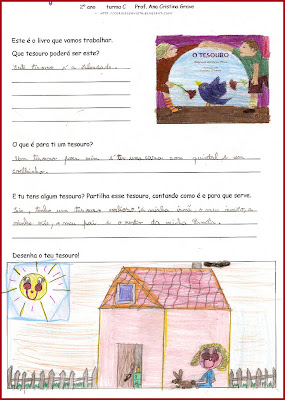 2º ano turma C Prof. Ana Cristina Grave
Este é o livro que vamos trabalhar.
Que tesouro poderá ser este?
Este tesouro é a liberdade.
O TESOURO
O que é para ti um tesouro?
Um tesouro para mim é ter uma casa com quintal e um
coelhinho.
E tu tens algum tesouro? Partilha esse tesouro, contando como é e para que serve.
Sim, tenho um tesouro valioso: a minha irmã, o meu
minha mãe, o meu pai e o da minha família.
Desenha o teu tesouro!